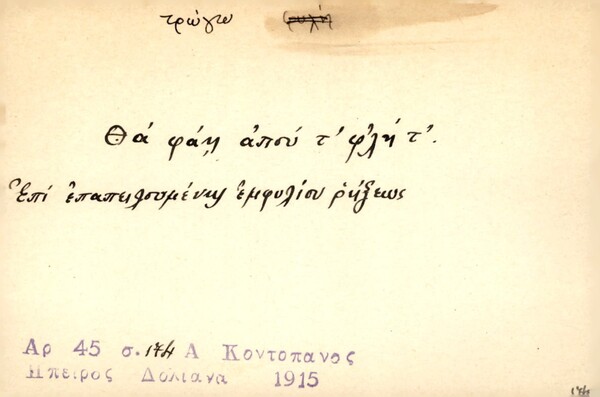 τρώγω φυλή
Θά φάῃ ἀπού τ' φ'λή τ'.
Ἐπί ἐπαπειλουμένης ἐμφυλίου ῥήξεως
Αρ 45 σ. 174 Α Κοντοπανος
Ηπειρος Δολιανα 1915
174